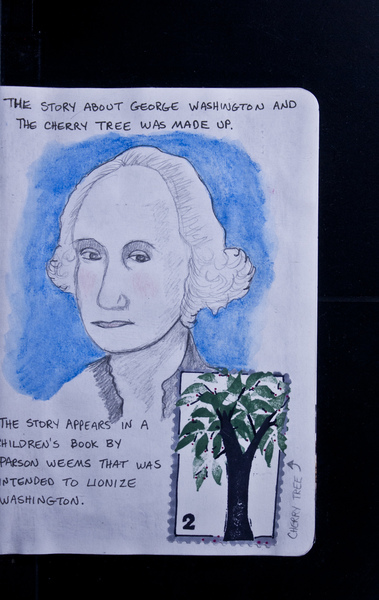 THE STORY ABOUT GEORGE WASHINGTON AND
THE CHERRY TREE WAS MADE UP.
THE STORY APPEARS IN A
CHILDREN'S BOOK BY
PARSON WEEMS THAT WAS
INTENDED TO LIONIZE
WASHINGTON.
2
CHERRY TREE